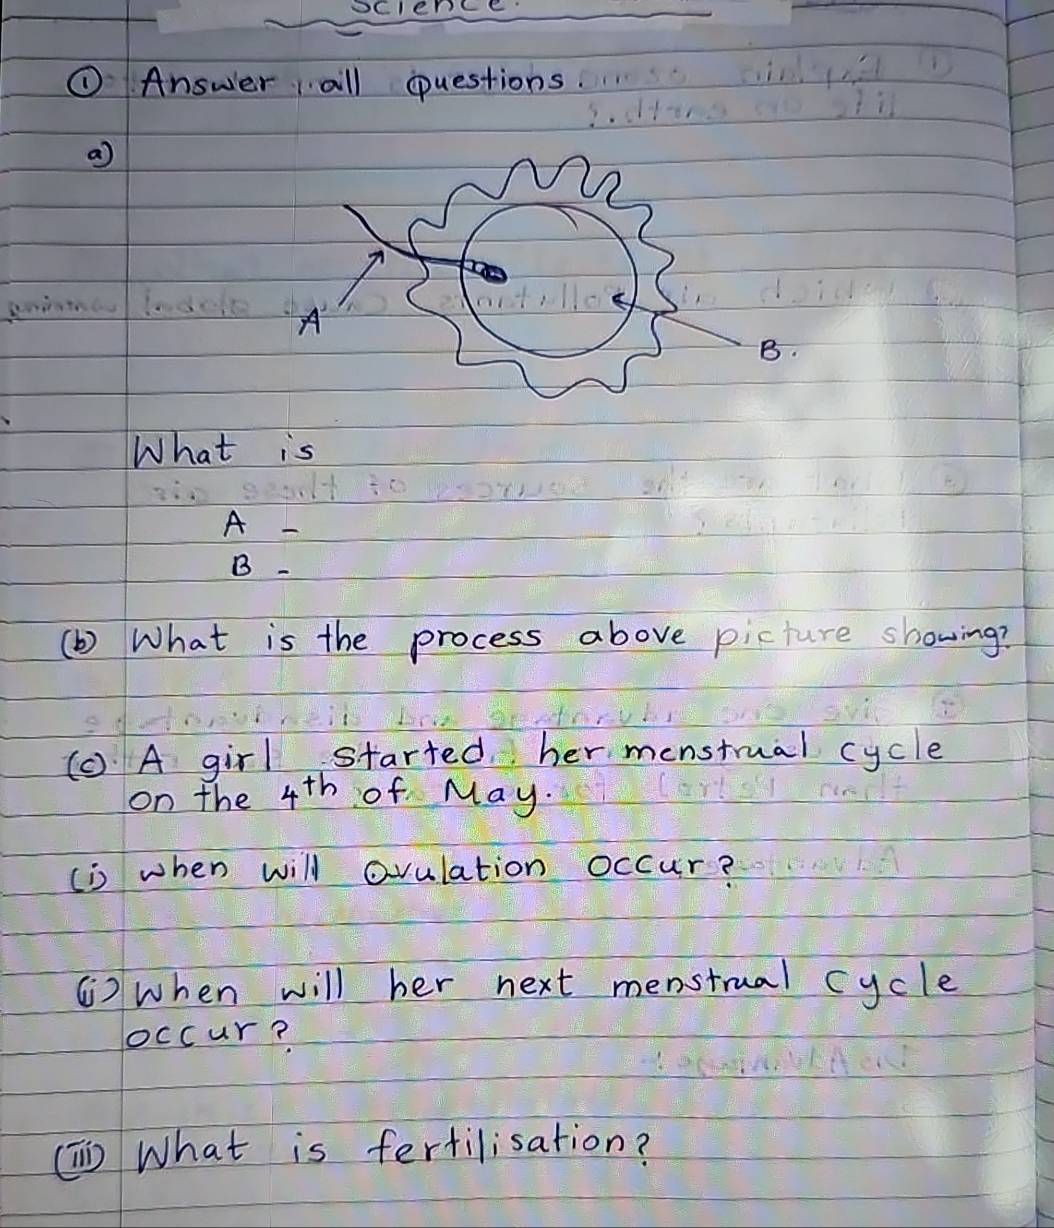 Science.
① Answer all questions.
a)
A
B.
What is
A -
B -
(b) What is the process above picture showing?
(c) A girl started her menstrual cycle
on the 4th of May.
(i) when will Ovulation occur?
(ii) when will her next menstrual cycle
occur?
(iii) What is fertilisation?